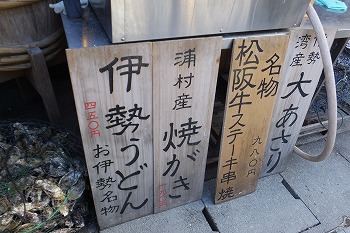 伊勢うどん
四五〇円
お伊勢名物
浦村産
焼がき
名物
松阪牛ステーキ串焼
九八〇円
伊勢
湾産
大あさり